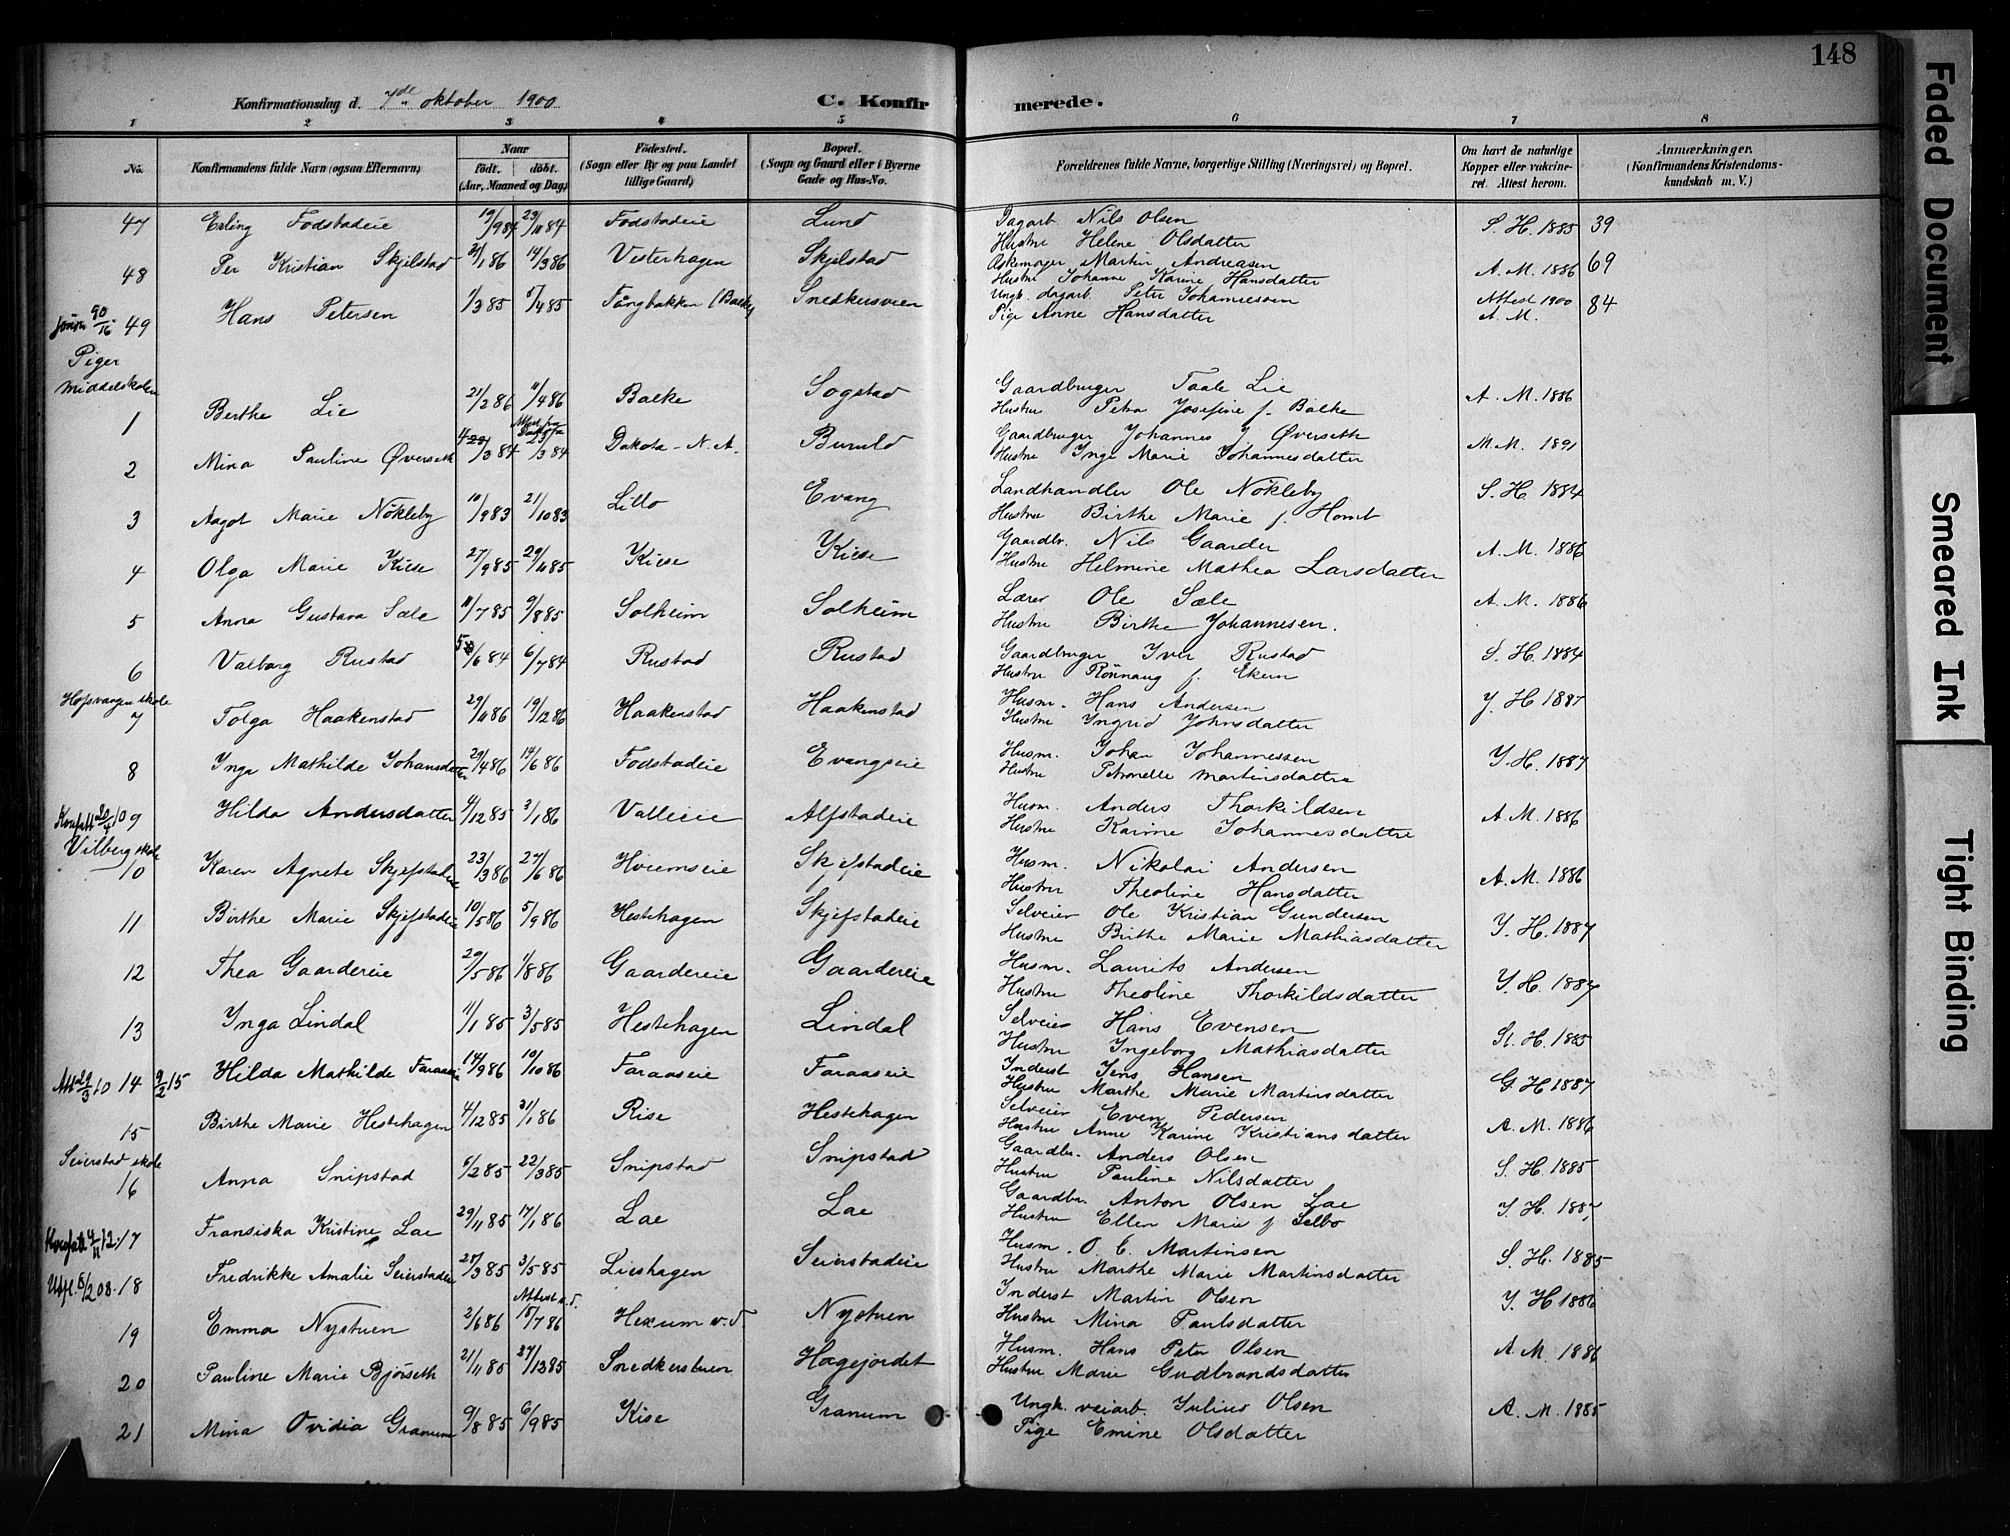 148
Konfirmationsdag d. 7de oktober 1900
C. Konfirmerede.
1 2 3 4 5 6 7 8
No. Konfirmandens fulde Navn (ogsaa Efternavn) Naar født. døbt. (Aar, Maaned og Dag) Fødested. (Sogn eller By og paa Landet tillige Gaard) Bopæl. (Sogn og Gaard eller i Byerne Gade og Hus-No. Forældrenes fulde Navne, borgerlige Stilling (Næringsvei) og Bopæl. Om havt de naturlige Kopper eller vakcineret. Attest herom. Anmærkninger. (Konfirmandens Kristendomskundskab m. V.)
47 Erling Fodstadeie 19/9 84 23/11 84 Fodstadeie Lund Dagarb. Nils Olsen S. H. 1885 39
Hustru Helene Olsdatter
48 Per Kristian Skjelstad 21/1 86 14/3 86 Vesterhagen Skjelstad Martin Andreasen A. M. 1886 69
Hustru Johanne Karine Hansdatter
49 Hans Petersen 1/3 85 5/4 85 (Balke) Snedkersveen Ungk. dagarb. Peter Johannessen Attest 1900 A. M. 84
Pige Anne Hansdatter
Piger
Middelskolen
1 Berthe Lie 21/2 86 11/4 86 Balke Sogstad Gaardbruger Taale Lie A. M. 1886
Hustru Petra Josefine f. Balke
2 Mina Pauline Øverseth /3 84 /3 84 Dakota - N. A. Buruld Gaardbruger Johannes J Øverseth M. M. 1891
Hustru Inge Marie Johannesdatter
3 Aagot Marie Nökleby 10/9 83 21/10 83 Lillo Evang Landhandler Ole Nökleby S. H. 1884
Hustru Birthe Marie f. Homb
4 Olga Marie Kiese 27/9 85 29/11 85 Kiese Kiese Gaardbr. Nils Gaarder A. M. 1886
Hustru Helmine Mathea Larsdatter
5 Anna Gustava Sæle 11/7 85 9/8 85 Solheim Solheim Lærer Ole Sæle A. M. 1886
Hustru Birthe Johannesen.
6 Valborg Rustad 5/6 84 6/7 84 Rustad Rustad Gaardbruger Iver Rustad S. H. 1884
Hustru Rönnaug f. Ekern
Hofsvangen skole
7 Tolga Haakenstad 29/11 86 19/12 86 Haakenstad Haakenstad Husm. Hans Andersen Y. H 1887
Hustru Ingrid Johnsdatter
8 Inga Mathilde Johansdatter 29/4 86 14/6 86 Fodstadeie Evangseie Husm. Johan Johannessen Y. H. 1887
Hustru Petronelle Martinsdatter
9 Hilda Andersdatter 4/12 85 3/1 86 Valleeie Alfstadeie Husm. Anders Thorkildsen A. M. 1886
Hustru Karine Johannesdatter
Vilberg skole
10 Karen Agnete Skjefstadeie 23/3 86 27/6 86 Hveemseie Skjefstadeie Husm. Nikolai Andersen A. M. 1886
Hustru Theoline Hansdatter
11 Birthe Marie Skjefstadeie 10/5 86 5/9 86 Hestehagen Skjefstadeie Selveier Ole Kristian Gundersen Y. H. 1887
Hustru Birthe Marie Mathiasdatter
12 Thea Gaardereie 29/5 86 1/8 86 Gaardereie Gaardereie Husm. Laurits Andersen Y. H. 1887
Hustru Theoline Thorkildsdatter
13 Inga Lindal 11/1 85 3/5 85 Hestehagen Lindal Selveier Hans Evensen St. H. 1885
Hustru Ingeborg Mathiasdatter
Att 29/3 10 14 9/2 15 Hilda Mathilde Faraaseie 14/9 86 10/10 86 Faraaseie Faraaseie Inderst Jens Hansen G. H 1887
Hustru Marthe Marie Martinsdatter
15 Birthe Marie Hestehagen 4/12 85 31/1 86 Rise Hestehagen Selveier Even Pedersen A. M. 1886
Hustru Anne Karine Kristiansdatter
Seierstad skole
16 Anna Snipstad 6/2 85 22/3 85 Snipstad Snipstad Gaardbr. Anders Olsen S. H. 1885
Hustru Pauline Nilsdatter
17 Fransiska Kristine Lae 29/11 85 17/1 86 Lae Lae Gaardbr. Anton Olsen Lae Y. H. 1887
Hustru Ellen Marie f Selbo
Utfl. 5/2 08. 18 Fredrikke Amalie Seierstadeie 25/3 85 3/5 85 Lieshagen Seierstadeie Husm. O. C. Martinsen S. H. 1885
Hustru Marthe Marie Martinsdatter
19 Emma Nystuen 2/6 86 Attest v. d. 18/7 86 Hexum v. d. Nystuen Inderst Martin Olsen Y. H 1886
Hustru Mina Paulsdatter
20 Pauline Marie Bjørseth 21/11 85 27/12 85 Snedkerstuen Hagejordet Husm. Hans Peter Olsen A. M. 1886
Hustru Marie Gudbrandsdatter
21 Mina Ovidia Granum 9/8 85 6/9 85 Kise Granum Ungk. veiarb. Julius Olsen A. M. 1885
Pige Emine Olsdatter
Faded Document
Smeared Ink
Tight Binding